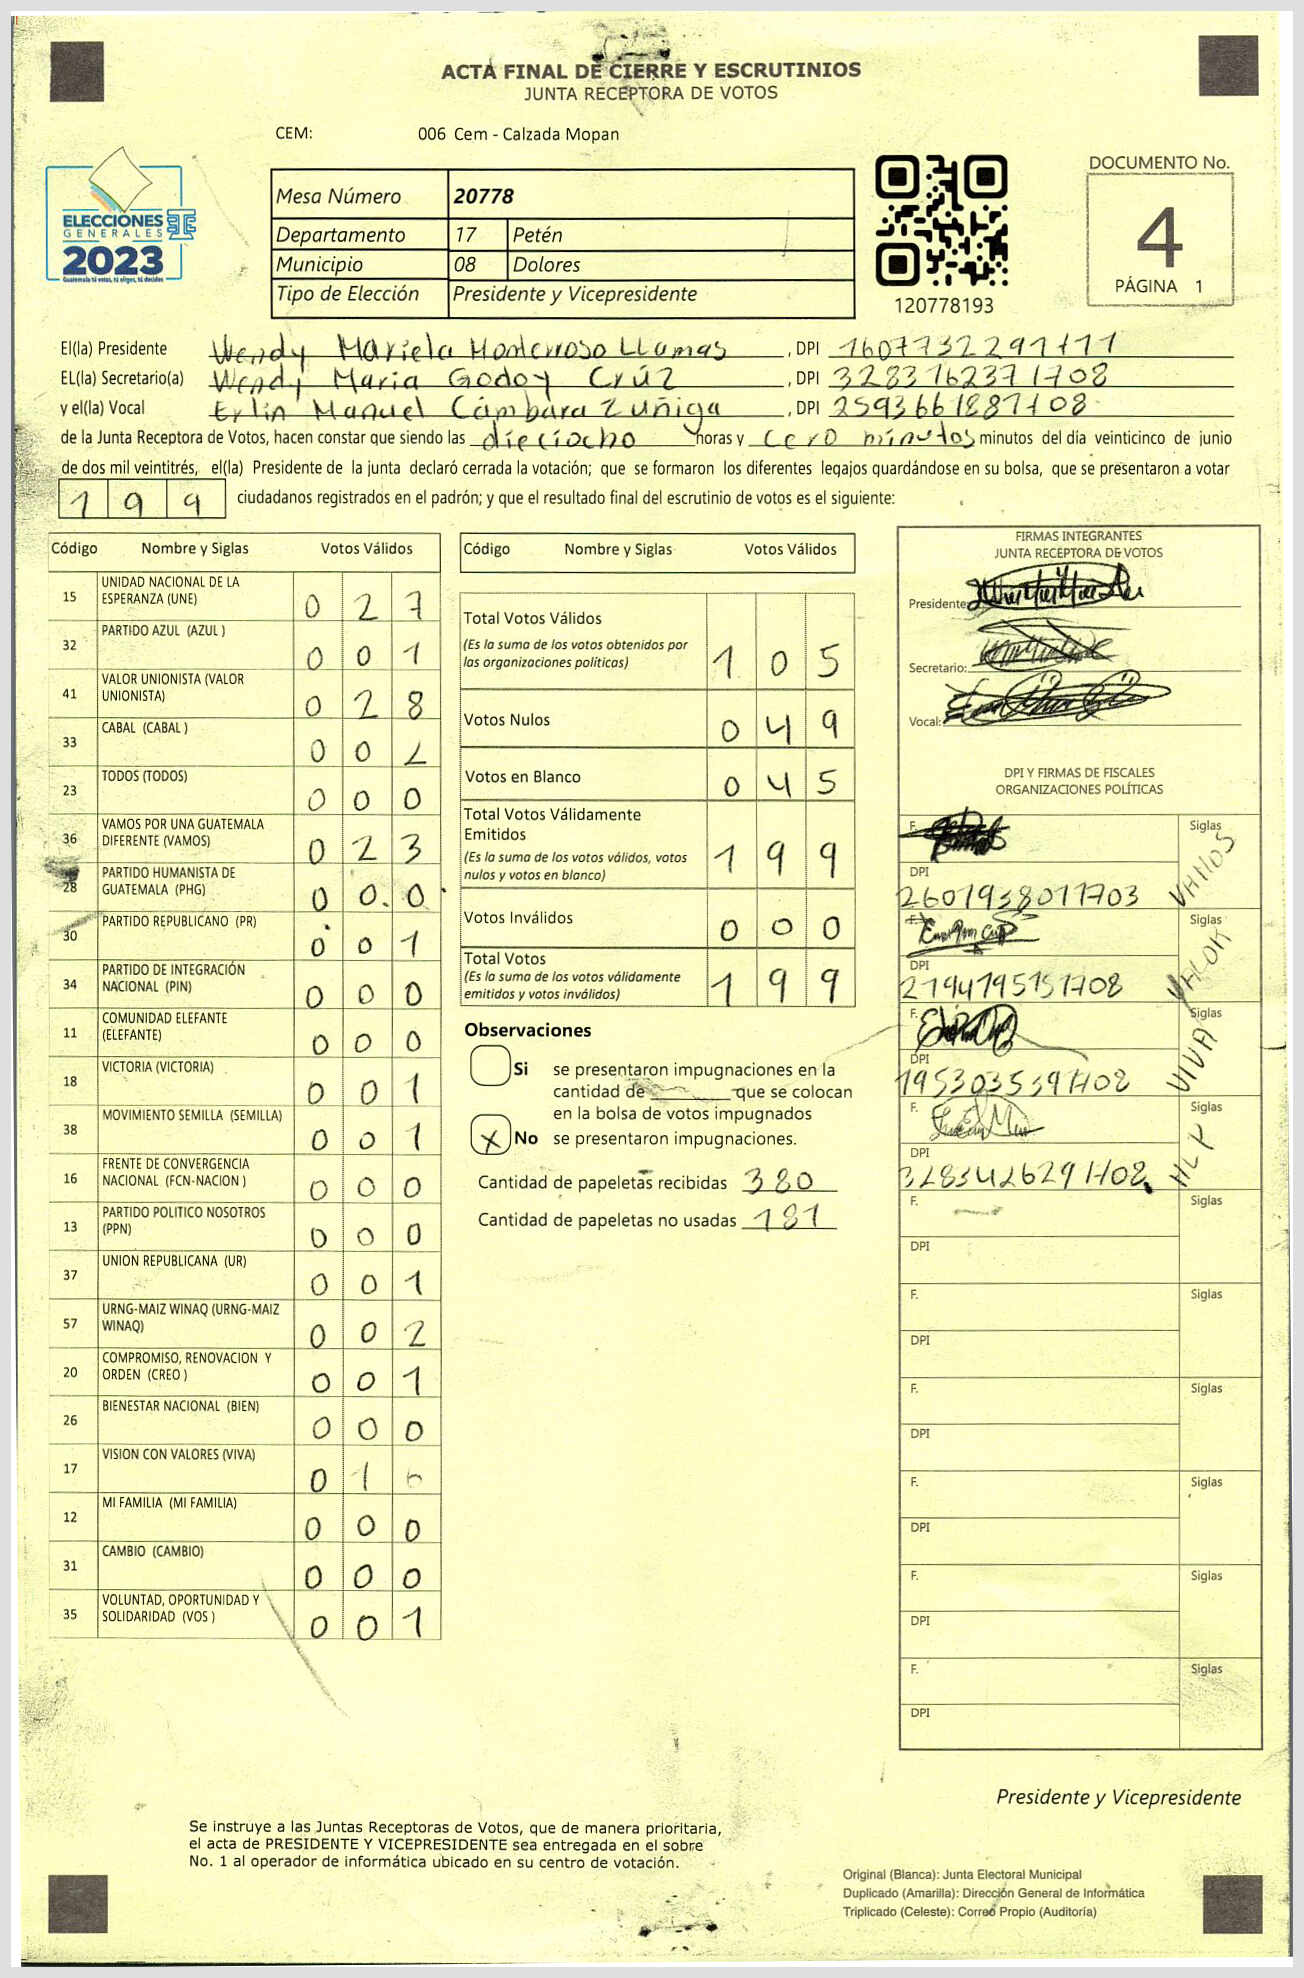 ACTA FINAL DE CIERRE Y ESCRUTINIOS
JUNTA RECEPTORA DE VOTOS
CEM: 006 Cem - Calzada Mopan
ELECCIONES
GENERALES
2023
Guatemala tú votas, tú eliges, tú decides
Mesa Número 20778
Departamento 17 Petén
Municipio 08 Dolores
Tipo de Elección Presidente y Vicepresidente
120778193
DOCUMENTO No.
4
PÁGINA 1
El(la) Presidente Wendy Mariela Monterroso Llamas, DPI 1607732291711
EL(la) Secretario(a) Wendy Maria Godoy Crúz, DPI 3283762371708
y el(la) Vocal Erlin Manuel Cámbara Zuñiga, DPI 2593661881708
de la Junta Receptora de Votos, hacen constar que siendo las dieciocho horas y cero minutos minutos del día veinticinco de junio
de dos mil veintitrés, el(la) Presidente de la junta declaró cerrada la votación; que se formaron los diferentes legajos quardándose en su bolsa, que se presentaron a votar
199 ciudadanos registrados en el padrón; y que el resultado final del escrutinio de votos es el siguiente:
Código Nombre y Siglas Votos Válidos
15 UNIDAD NACIONAL DE LA
ESPERANZA (UNE) 0 2 7
32 PARTIDO AZUL (AZUL ) 0 0 1
41 VALOR UNIONISTA (VALOR
UNIONISTA) 0 2 8
33 CABAL (CABAL ) 0 0 2
23 TODOS (TODOS) 0 0 0
36 VAMOS POR UNA GUATEMALA
DIFERENTE (VAMOS) 0 2 3
28 PARTIDO HUMANISTA DE
GUATEMALA (PHG) 0 0 0
30 PARTIDO REPUBLICANO (PR) 0 0 1
34 PARTIDO DE INTEGRACIÓN
NACIONAL (PIN) 0 0 0
11 COMUNIDAD ELEFANTE
(ELEFANTE) 0 0 0
18 VICTORIA (VICTORIA) 0 0 1
38 MOVIMIENTO SEMILLA (SEMILLA) 0 0 1
16 FRENTE DE CONVERGENCIA
NACIONAL (FCN-NACION ) 0 0 0
13 PARTIDO POLITICO NOSOTROS
(PPN) 0 0 0
37 UNION REPUBLICANA (UR) 0 0 1
57 URNG-MAIZ WINAQ (URNG-MAIZ
WINAQ) 0 0 2
20 COMPROMISO, RENOVACION Y
ORDEN (CREO ) 0 0 1
26 BIENESTAR NACIONAL (BIEN) 0 0 0
17 VISION CON VALORES (VIVA) 0 1 6
12 MI FAMILIA (MI FAMILIA) 0 0 0
31 CAMBIO (CAMBIO) 0 0 0
35 VOLUNTAD, OPORTUNIDAD Y
SOLIDARIDAD (VOS ) 0 0 1
Código Nombre y Siglas Votos Válidos
Total Votos Válidos
(Es la suma de los votos obtenidos por
las organizaciones políticas) 1 0 5
Votos Nulos 0 4 9
Votos en Blanco 0 4 5
Total Votos Válidamente
Emitidos
(Es la suma de los votos válidos, votos
nulos y votos en blanco) 1 9 9
Votos Inválidos 0 0 0
Total Votos
(Es la suma de los votos válidamente
emitidos y votos inválidos) 1 9 9
Observaciones
Si se presentaron impugnaciones en la
cantidad de que se colocan
en la bolsa de votos impugnados
X No se presentaron impugnaciones.
Cantidad de papeletas recibidas 380
Cantidad de papeletas no usadas 181
FIRMAS INTEGRANTES
JUNTA RECEPTORA DE VOTOS
Presidente:
Secretario:
Vocal:
DPI Y FIRMAS DE FISCALES
ORGANIZACIONES POLÍTICAS
F. Siglas
DPI VAMOS
2601938011703
F. Siglas
DPI VALOR
2194195151708
F. Siglas
DPI VIVA
1953035391708
F. Siglas
DPI MLP
3283426291708
F. Siglas
DPI
F. Siglas
DPI
F. Siglas
DPI
F. Siglas
DPI
F. Siglas
DPI
F. Siglas
DPI
Presidente y Vicepresidente
Se instruye a las Juntas Receptoras de Votos, que de manera prioritaria,
el acta de PRESIDENTE Y VICEPRESIDENTE sea entregada en el sobre
No. 1 al operador de informática ubicado en su centro de votación.
Original (Blanca): Junta Electoral Municipal
Duplicado (Amarilla): Dirección General de Informática
Triplicado (Celeste): Correo Propio (Auditoría)